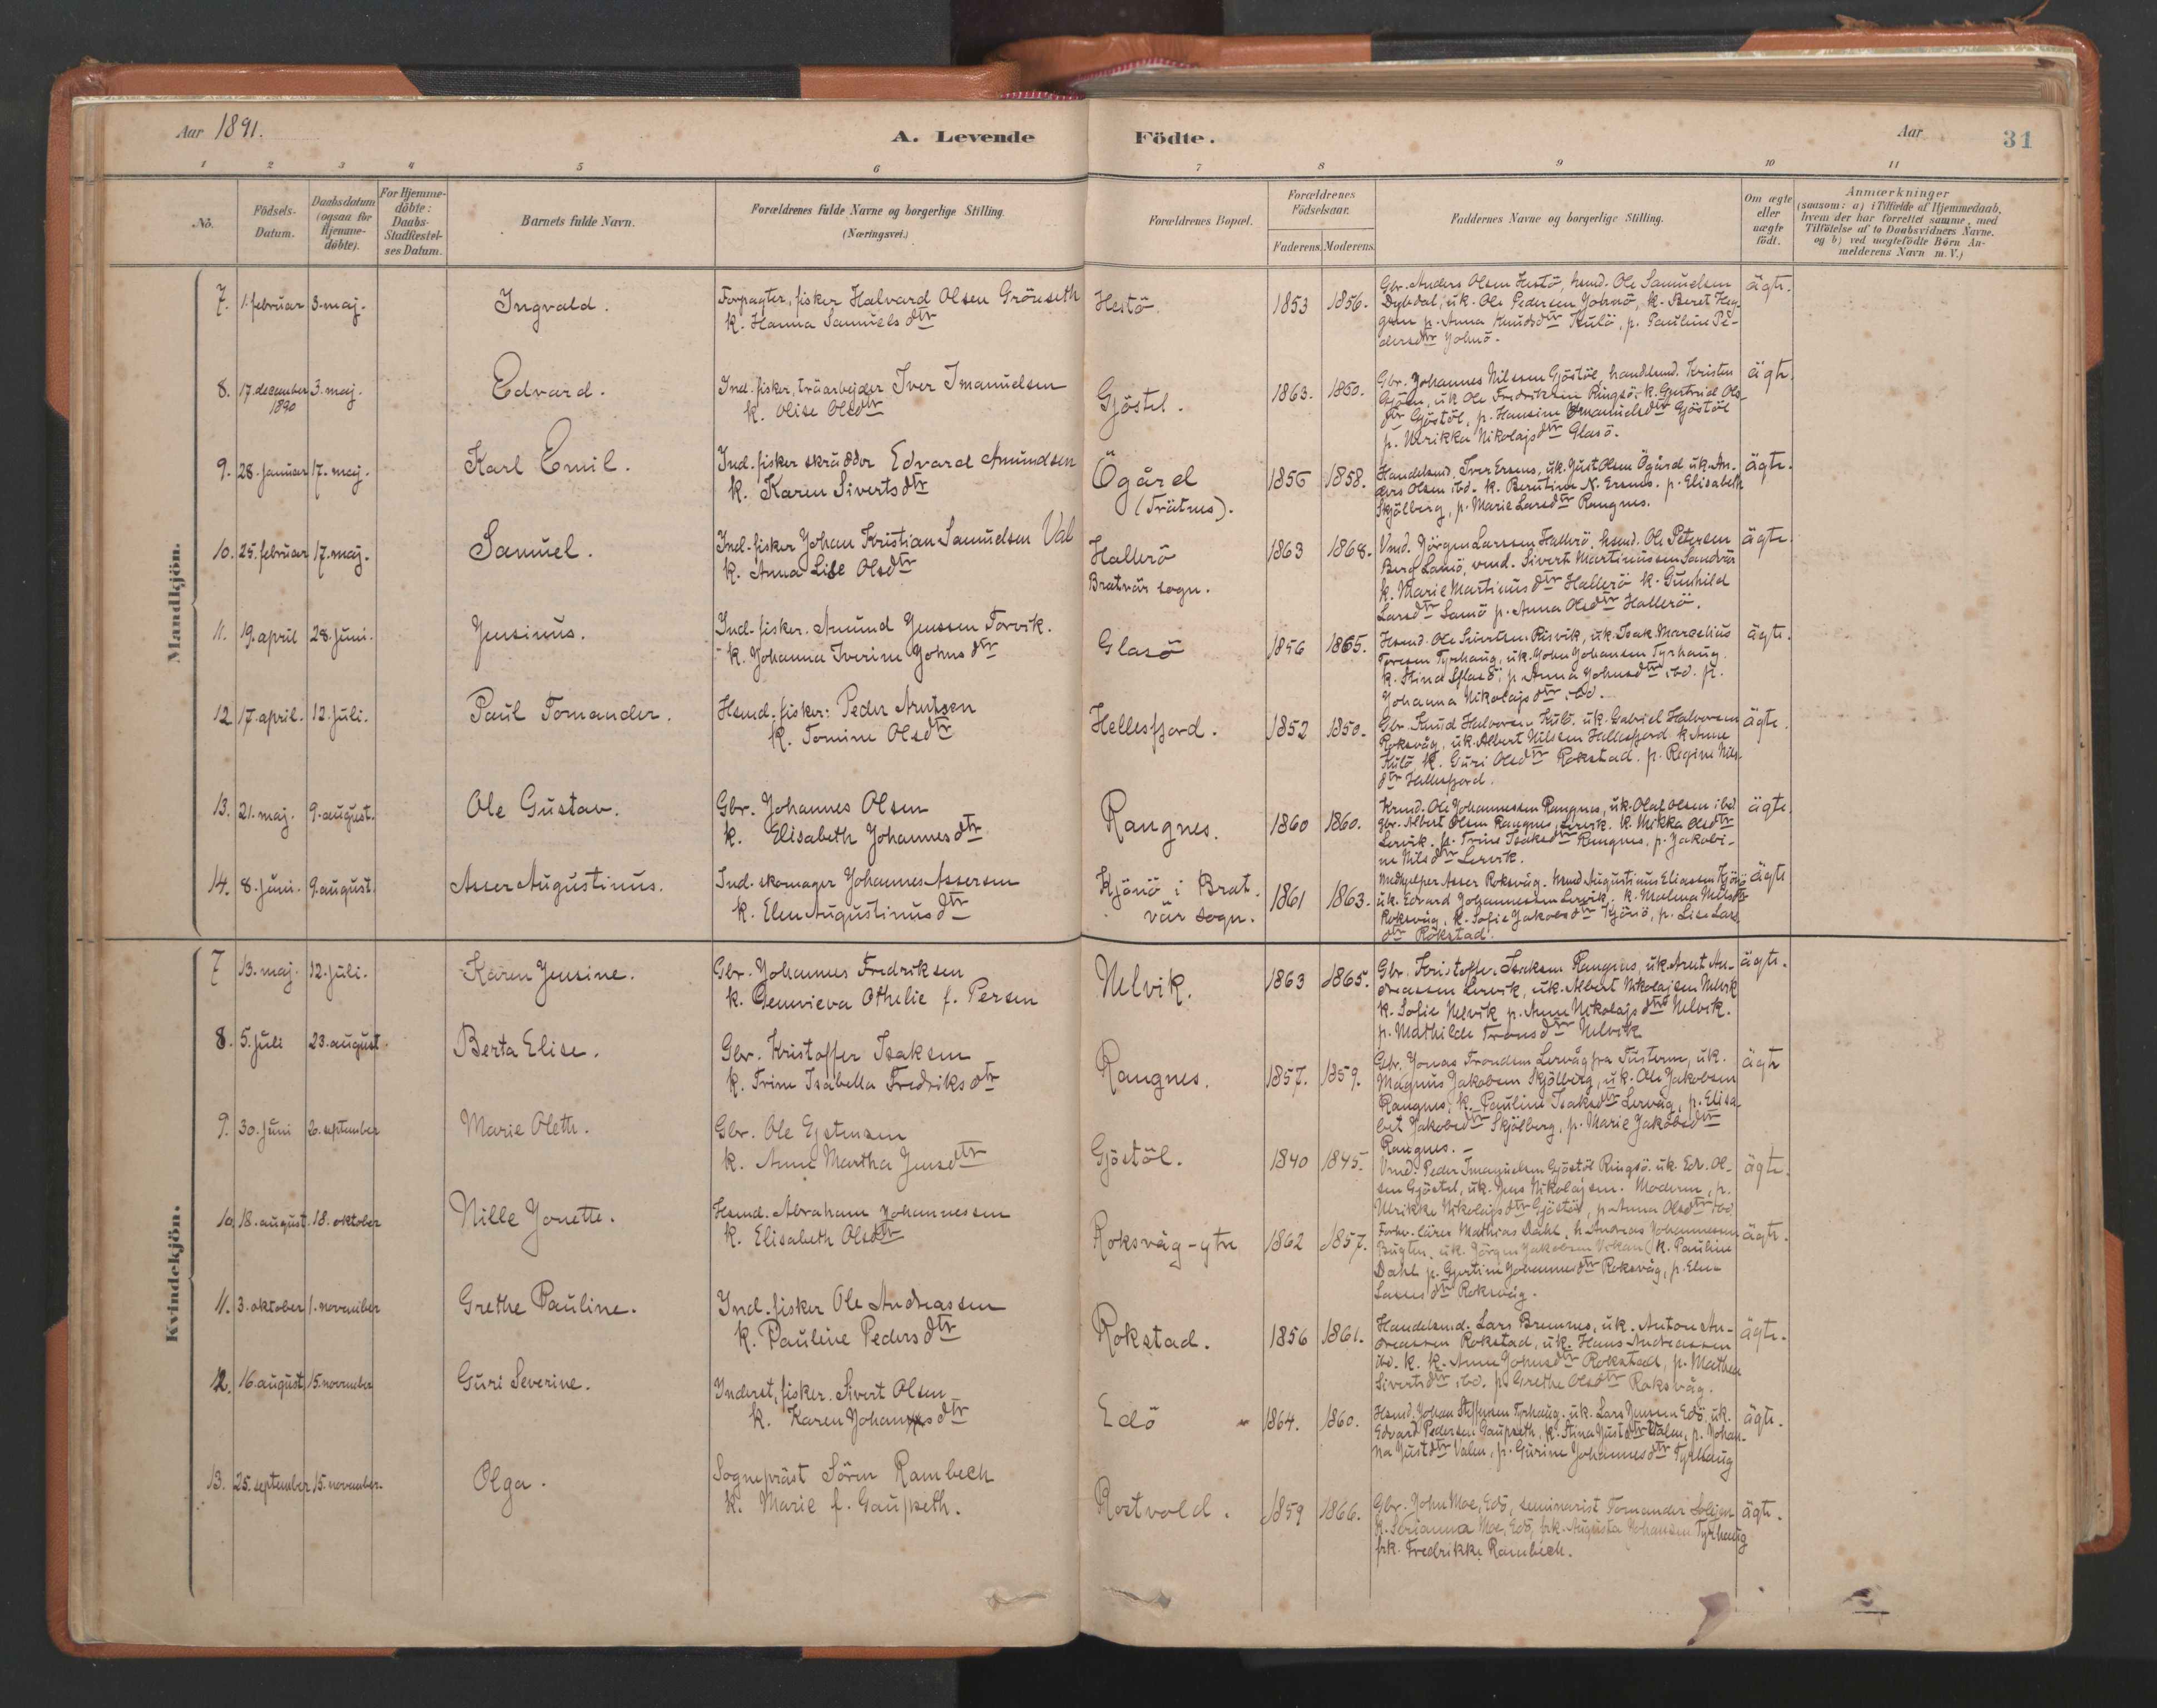 Aar 1891.
A. Levende
Födte.
Aar
31
1 2 3 4 5 6 7 8 9 10 11
No.
Födsels-
Datum.
Daabsdatum
(ogsaa for
Hjemme-
döbte).
For Hjemme-
döbte:
Daabs-
Stadfæstel-
ses Datum.
Barnets fulde Navn.
Forældrenes fulde Navne og borgerlige Stilling.
(Næringsvei.)
Forældrenes Bopæl.
Forældrenes
Födselsaar.
Faderens. Moderens.
Faddernes Navne og borgerlige Stilling.
Om ægte
eller
uægte
født.
Anmærkninger
(saasom: a) i Tilfælde af Hjemmedaab,
hvem der har forrettet samme, med
Tilföielse af to Daabsvidners Navne.
og b) ved uægtefödte Börn An-
melderens Navn m.V.)
Mandkjön.
7. 1. februar 3. maj. Ingvald.
Forpagter, fisker Halvard Olsen Gröneseth
k. Hanna Samuelsdtr
Hestö. 1853 1856.
Gbr. Anders Olsen Hestö, hsmd. Ole Samuelsen
Dybdal, uk. Ole Pedersen Johnö, k. Beret
p. Anna Knudsdtr Kulö, p. Pauline Pe-
dersdtr Johnö.
ägte.
8. 17. december 3. maj. Edvard.
1890
Ind. fisker, träarbejder Iver Imanuelsen
k. Olise Olsdtr
Gjöstel. 1863. 1860.
Gbr. Johannes Nilssen Gjöstöl, handlsmd. Kristen
uk Ole Fredriksen Ringsö, k. Gjertrud Ols-
dtr Gjöstöl, p. Hansine Imanuelsdtr Gjöstöl
p. Ulrikka Nikolajsdtr Glasö.
ägte.
9. 28. januar 17. maj. Karl Emil.
Ind. fisker skrädder Edvard Amundsen
k. Karen Sivertsdtr
Ögård
(Trätnes).
1856 1858.
Handelsmd. Iver Ersnes, uk. Just Olsen Ögård uk. An-
ders Olsen ibd. k. Berntine N. Ersnes. p. Elisabeth
Skjölberg, p. Marie Larsdtr Rangnes.
ägte.
10. 25. februar 17. maj. Samuel.
Ind. fisker Johan Kristian Samuelsen Val
k. Anna Lise Olsdtr
Hallerö
Bratvär sogn.
1863 1868.
Vmd. Jörgen Larssen Hallerö, hsmd. Ole Petersen
Berg Lamö, vmd. Sivert Martinussen Sandvär
k. Marie Martinusdtr Hallerö k. Gunhild
Larsdtr Lamö p. Anna Olsdtr Hallerö.
ägte.
11. 19. april 28. juni. Jensinus.
Ind. fisker. Amund Jenssen Torvik.
k. Johanna Iverine Johnsdtr
Glasö 1856 1865.
Hsmd. Ole Sivertsen Risvik, uk. Isak Marcelius
Tyrhaug, uk. John Johansen Tyrhaug.
k. Stina Glasö, p. Anna Johnsdtr ibd. p.
Johanna Nikolajsdtr ibd.
ägte.
12 17. april. 12. juli. Paul Tomander.
Hsmd. fisker: Peder Arntsen
k. Tomine Olsdtr
Hellesfjord. 1852 1850.
Gbr. Knud Halvorsen Kulö. uk. Gabriel Halvorsen
Roksvåg, uk. Albert Nilssen Hellesfjord k. Anne
Kulö, k. Guri Olsdtr Rokstad. p. Regine Nils-
dtr Hellesfjord.
ägte.
13. 21. maj. 9. august. Ole Gustav.
Gbr. Johannes Olsen
k. Elisabeth Johannesdtr
Rangnes. 1860 1860.
Ole Johannessen Rangnes, uk. Olaf Olsen ibd
gbr. Albert Olsen Rangnes, k. Mikka Olsdtr
Lervik. p. Trine Isaksdtr Rangnes. p. Jakobi-
ne Nilsdtr Lervik.
ägte.
14. 8. juni. 9. august. Asser Augustinus.
Ind. skomager Johannes Assersen
k. Elen Augustinusdtr
Kjönö i Brat-
vär sogn.
1861 1863.
Medhjelper Asser Roksvåg. hsmd Augustinus Eliassen Kjönö
uk. Edvard Johannessen Lervik. k. Malena Nilsdtr
Roksvåg, k. Sofie Jakobsdtr Kjönö, p. Lise Lars
dtr Rokstad.
ägte
Kvindekjön.
7 13. maj. 12. juli. Karen Jensine.
Gbr. Johannes Fredriksen
k. Genevieva Othelie f. Persen
Nelvik. 1863 1865.
Gbr. Kristoffer Isaksen Rangnes, uk. Arnt An-
dreassen Lervik, uk. Albert Nikolajsen Nelvik
k. Sofie Nelvik p. Anne Nikolajsdtr Nelvik.
p. Mathilde Tronsdtr Nelvik
ägte.
8. 5. juli 23. august. Berta Elise.
Gbr. Kristoffer Isaksen
k. Trine Isabella Fredriksdtr
Rangnes. 1857. 1859.
Gbr. Jonas Trondsen Lervåg fra Tusteren, uk.
Magnus Jakobsen Skjölberg, uk. Ole Jakobsen
Rangnes, k. Pauline Isaksdtr Lervåg, p. Elisa-
bet Jakobsdtr Skjölberg, p. Marie Jakobsdtr
Rangnes.
ägte
9. 30. juni 20. september Marie Oleth.
Gbr. Ole Ejstensen
k. Anne Martha Jensdtr
Gjöstöl. 1840 1845.
Vmd. Peder Imanuelsen Gjöstöl Ringsö. uk. Edv. Ol-
sen Gjöstel, uk. Jens Nikolajsen. Moderen, p.
Ulrikke Nikolajsdtr Gjöstöl, p. Anna Olsdtr ibd
ägte
10 18. august. 18. oktober Nille Jonette.
Hsmd. Abraham Johannessen
k. Elisabeth Olsdtr
Roksvåg-ytre 1862 1857.
Forhv. lärer Mathias Dahl, h. Andreas Johannessen
Bugten, uk. Jörgen Jakobsen Vikan k. Pauline
Dahl p. Gjertine Johannesdtr Roksvåg, p. Elen
Roksvåg.
ägte.
11. 3. oktober 1. november Grethe Pauline.
Ind. fisker Ole Andreassen
k. Pauline Pedersdtr
Rokstad. 1856 1861.
Handelsmd. Lars Bremnes, uk. Anton An-
dreassen Rokstad, uk. Hans Andreassen
ibd. k. k. Anne Johnsdtr Rokstad, p. Mathea
Sivertsdtr ibd. p. Grethe Olsdtr Roksvåg.
ägte.
12. 16. august 15. november Guri Severine.
Inderst, fisker. Sivert Olsen
k. Karen Johansdtr
Edö 1864. 1860.
Hsmd. Johan Steffensen Tyrhaug. uk. Lars Jensen Edö, uk.
Edvard Pedersen Gaupseth, k. Stina Justdtr Valen, p. Johan-
na Justdtr Valen, p. Gurine Johannesdtr Tyrhaug
ägte.
13. 25. september 15. november. Olga.
Sognepräst Sören Rambech
k. Marie f. Gaupseth.
Rostvold. 1859 1866.
Gbr. John Moe, Edö, seminarist Tomander
k. Moe, Edö, frk. Augusta Johansen Tyrhaug
frk. Fredrikke Rambech.
ägte.